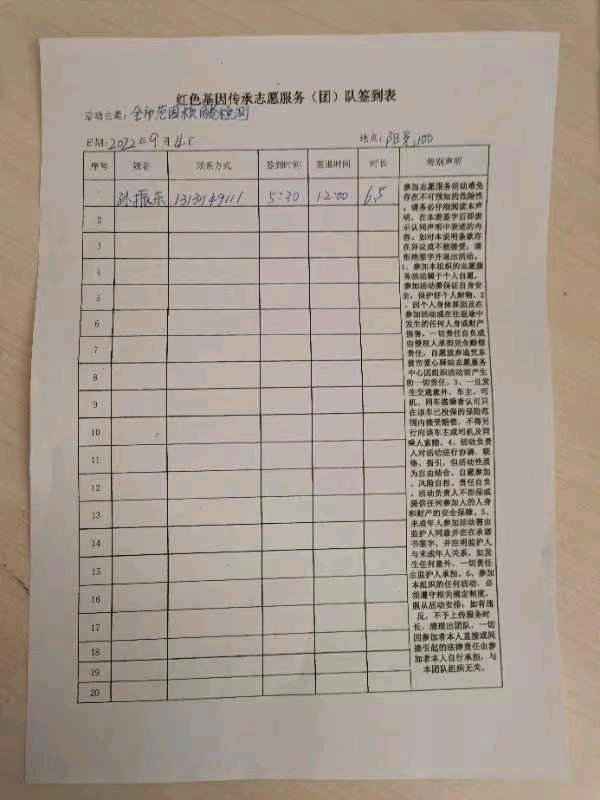 红色基因传承志愿服务（团）队签到表
活动主题：全市范围核酸检测
日期:2022年9月4日
地点：阳光100
序号 姓名 联系方式 签到时间 签退时间 时长 特别声明
孙振东 5:30 12:00 6.5
2
3
4
5
6
7
8
9
10
11
12
13
14
15
16
17
18
19
20
参加志愿服务活动难免
存在不可预知的危险性
，请务必仔细阅读本声
明，在本表签字后即表
示认同声明中表述的内
容。如对本说明条款存
在异议或不能接受，请
拒绝签字并退出活动。
1、参加本组织的志愿服
务活动属于个人自愿，
参加活动要保证自身安
全，保护好个人财物。2
、因个人身体原因及在
参加活动或在往返途中
发生的任何人身或财产
损害，一切责任自负或
由侵权人承担完全赔偿
责任，自愿放弃追究东
营市爱心驿站志愿服务
中心因组织活动而产生
的一切责任。3、一旦发
生交通意外，车主、司
机、同车搭乘者认可只
在该车已投保的保险范
围内接受赔偿，不得另
行向该车主或司机及同
乘人索赔。4、活动负责
人对活动进行协调、联
络、指引，但活动性质
为自由结合、自愿参加
、风险自担、责任自负
，活动负责人不担保或
提供任何参加人的人身
和财产的安全保障。5、
未成年人参加活动需由
监护人同意并在在承诺
书签字，并注明监护人
与未成年人关系，如发
生任何意外，一切责任
由监护人承担。6、参加
本组织的任何活动，必
须遵守相关规定制度，
服从活动安排；如有违
反，不予上传服务时
长，清理出团队，一切
因参加者本人直接或间
接引起的法律责任由参
加者本人自行承担，与
本团队组织无关。